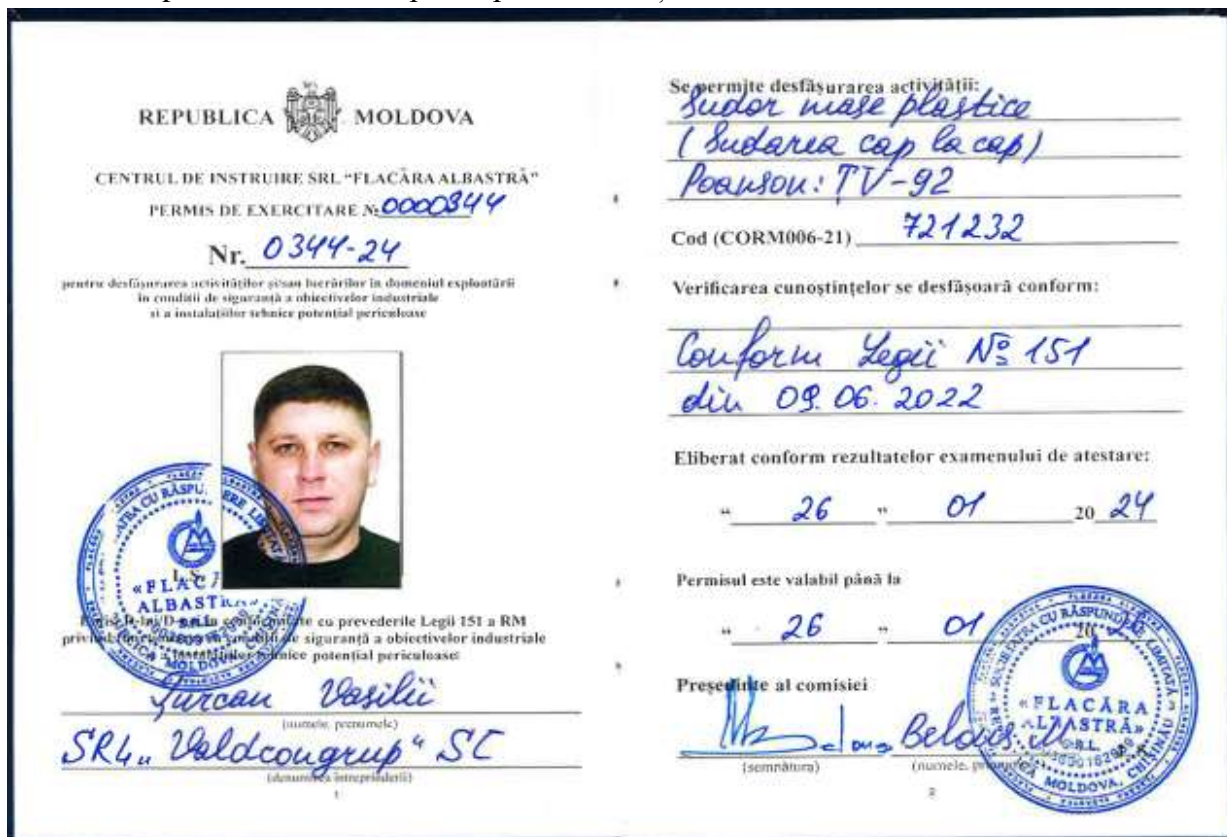 REPUBLICA MOLDOVA
CENTRUL DE INSTRUIRE SRL "FLACĂRA ALBASTRĂ"
PERMIS DE EXERCITARE № 0000344
Nr. 0344-24
pentru desfășurarea activităților și/sau lucrărilor în domeniul exploatării
în condiții de siguranță a obiectivelor industriale
și a instalațiilor tehnice potențial periculoase
L.S.
«FLACĂRA
ALBASTRĂ»
S.R.L.
cu prevederile Legii 151 a RM
de siguranță a obiectivelor industriale
tehnice potențial periculoase:
Țurcan Vasilii
(numele, prenumele)
SRL "Valdcongrup" SC
(denumirea întreprinderii)
1
Se permite desfășurarea activității:
Sudor mase plastice
(Sudarea cap la cap)
Poanson: TV-92
Cod (CORM006-21) 721232
Verificarea cunoștințelor se desfășoară conform:
Conform Legii № 151
din 09.06.2022
Eliberat conform rezultatelor examenului de atestare:
" 26 " 01 20 24
Permisul este valabil până la
" 26 " 01 20 26
Președinte al comisiei
(semnătura) (numele, prenumele)
«FLACĂRA
ALBASTRĂ»
S.R.L.
MOLDOVA, CHIȘINĂU
2